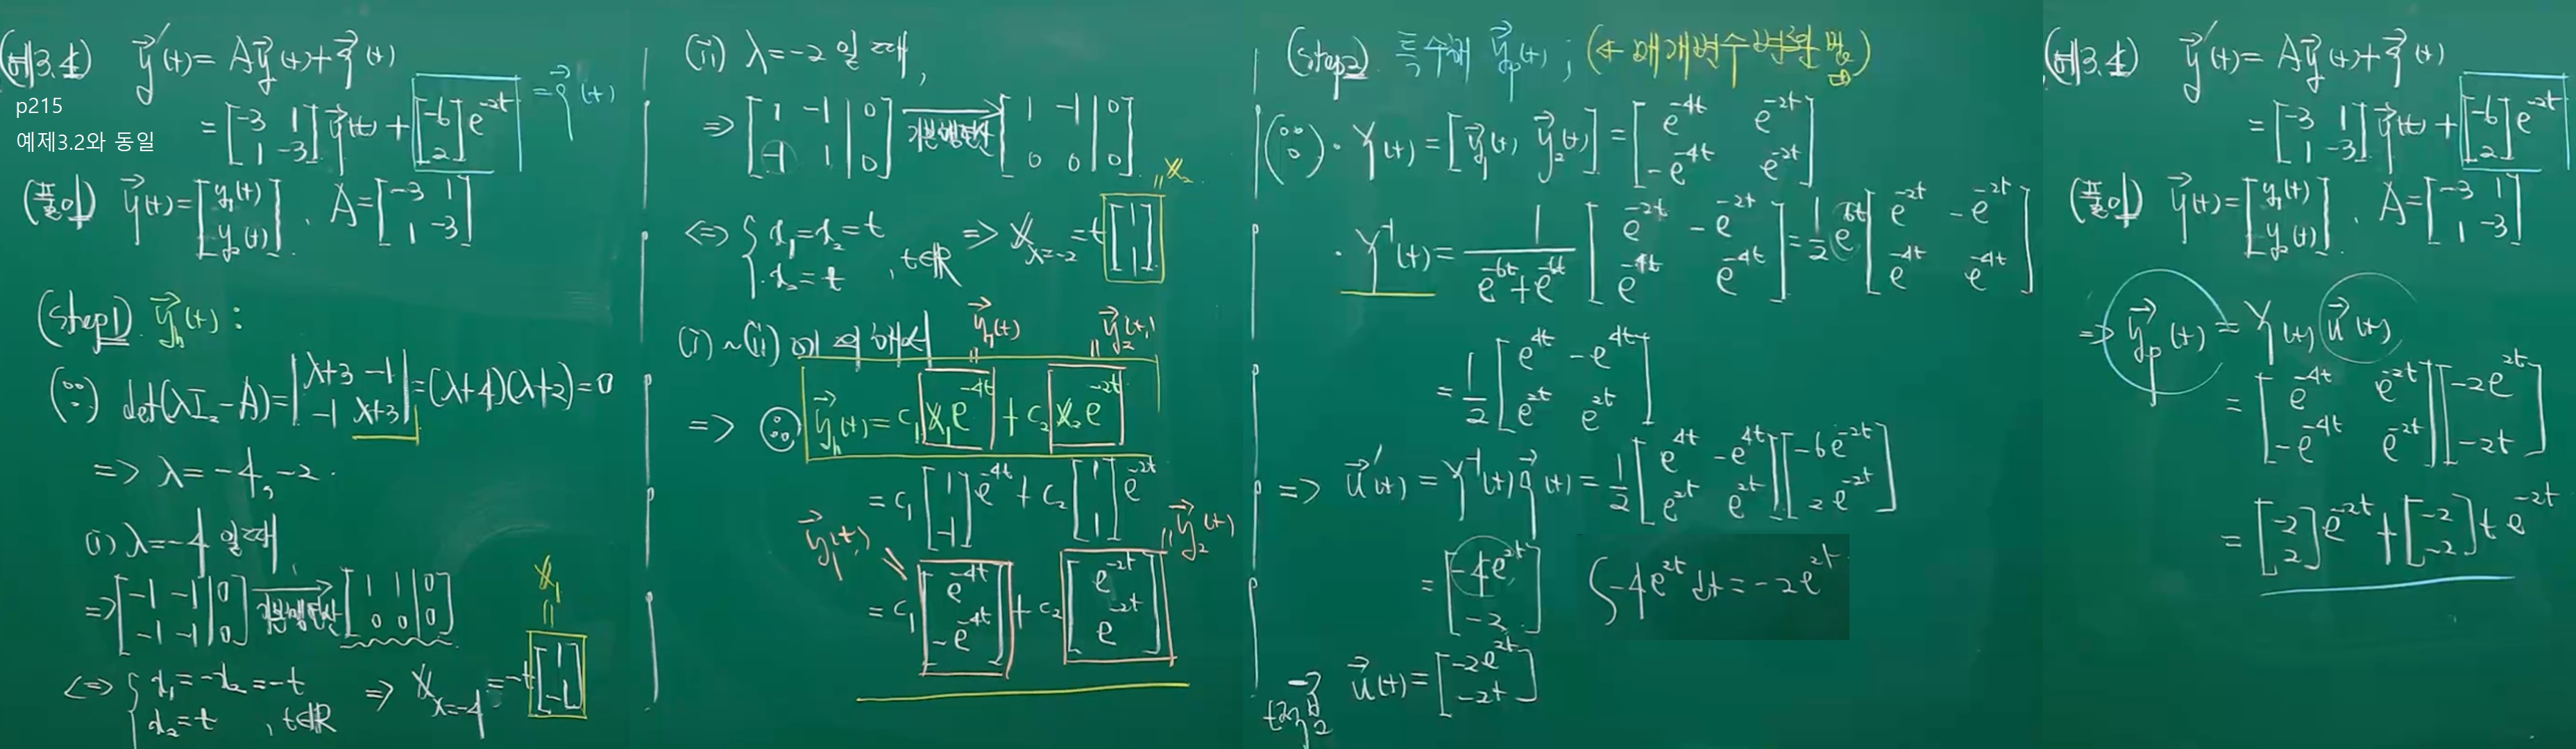 (예3.4) y⃗'(t) = Ay⃗(t) + g⃗(t)
p215
예제3.2와 동일
= [-3 1; 1 -3] y⃗(t) + [-6; 2] e^{-2t} = g⃗(t)
(풀이) y⃗(t) = [y₁(t); y₂(t)], A = [-3 1; 1 -3]
(Step1) y⃗_h(t) :
(∵) det(λI₂ - A) = |λ+3 -1; -1 λ+3| = (λ+4)(λ+2) = 0
=> λ = -4, -2.
(i) λ = -4 일 때
=> [-1 -1 | 0; -1 -1 | 0] 기본행연산 → [1 1 | 0; 0 0 | 0]
<=> { x₁ = -x₂ = -t
x₂ = t , t∈ℝ => X_{λ=-4} = -t [1; -1] = X₁
(ii) λ = -2 일 때,
=> [1 -1 | 0; -1 1 | 0] 기본행연산 → [1 -1 | 0; 0 0 | 0]
<=> { x₁ = x₂ = t
x₂ = t , t∈ℝ => X_{λ=-2} = t [1; 1] = X₂
(i)~(ii)에 의해서 y⃗₁(t) y⃗₂(t)
=> y⃗_h(t) = c₁ X₁e^{-4t} + c₂ X₂e^{-2t}
= c₁ [1; -1] e^{-4t} + c₂ [1; 1] e^{-2t}
y⃗₁(t) y⃗₂(t)
= c₁ [e^{-4t}; -e^{-4t}] + c₂ [e^{-2t}; e^{-2t}]
(Step2). 특수해 y⃗_p(t) ; (← 매개변수변화법)
(∵)· Y(t) = [y⃗₁(t) y⃗₂(t)] = [e^{-4t} e^{-2t}; -e^{-4t} e^{-2t}]
· Y⁻¹(t) = 1/(e^{-6t}+e^{-6t}) [e^{-2t} -e^{-2t}; e^{-4t} e^{-4t}] = 1/2 e^{6t} [e^{-2t} -e^{-2t}; e^{-4t} e^{-4t}]
= 1/2 [e^{4t} -e^{4t}; e^{2t} e^{2t}]
=> u⃗'(t) = Y⁻¹(t) g⃗(t) = 1/2 [e^{4t} -e^{4t}; e^{2t} e^{2t}] [-6e^{-2t}; 2e^{-2t}]
= [-4e^{2t}; -2] ∫-4e^{2t} dt = -2e^{2t}
u⃗(t) = [-2e^{2t}; -2t]
(예3.4) y⃗'(t) = Ay⃗(t) + g⃗(t)
= [-3 1; 1 -3] y⃗(t) + [-6; 2] e^{-2t}
(풀이) y⃗(t) = [y₁(t); y₂(t)], A = [-3 1; 1 -3]
=> y⃗_p(t) = Y(t) u⃗(t)
= [e^{-4t} e^{-2t}; -e^{-4t} e^{-2t}] [-2e^{2t}; -2t]
= [-2; 2] e^{-2t} + [-2; -2] t e^{-2t}